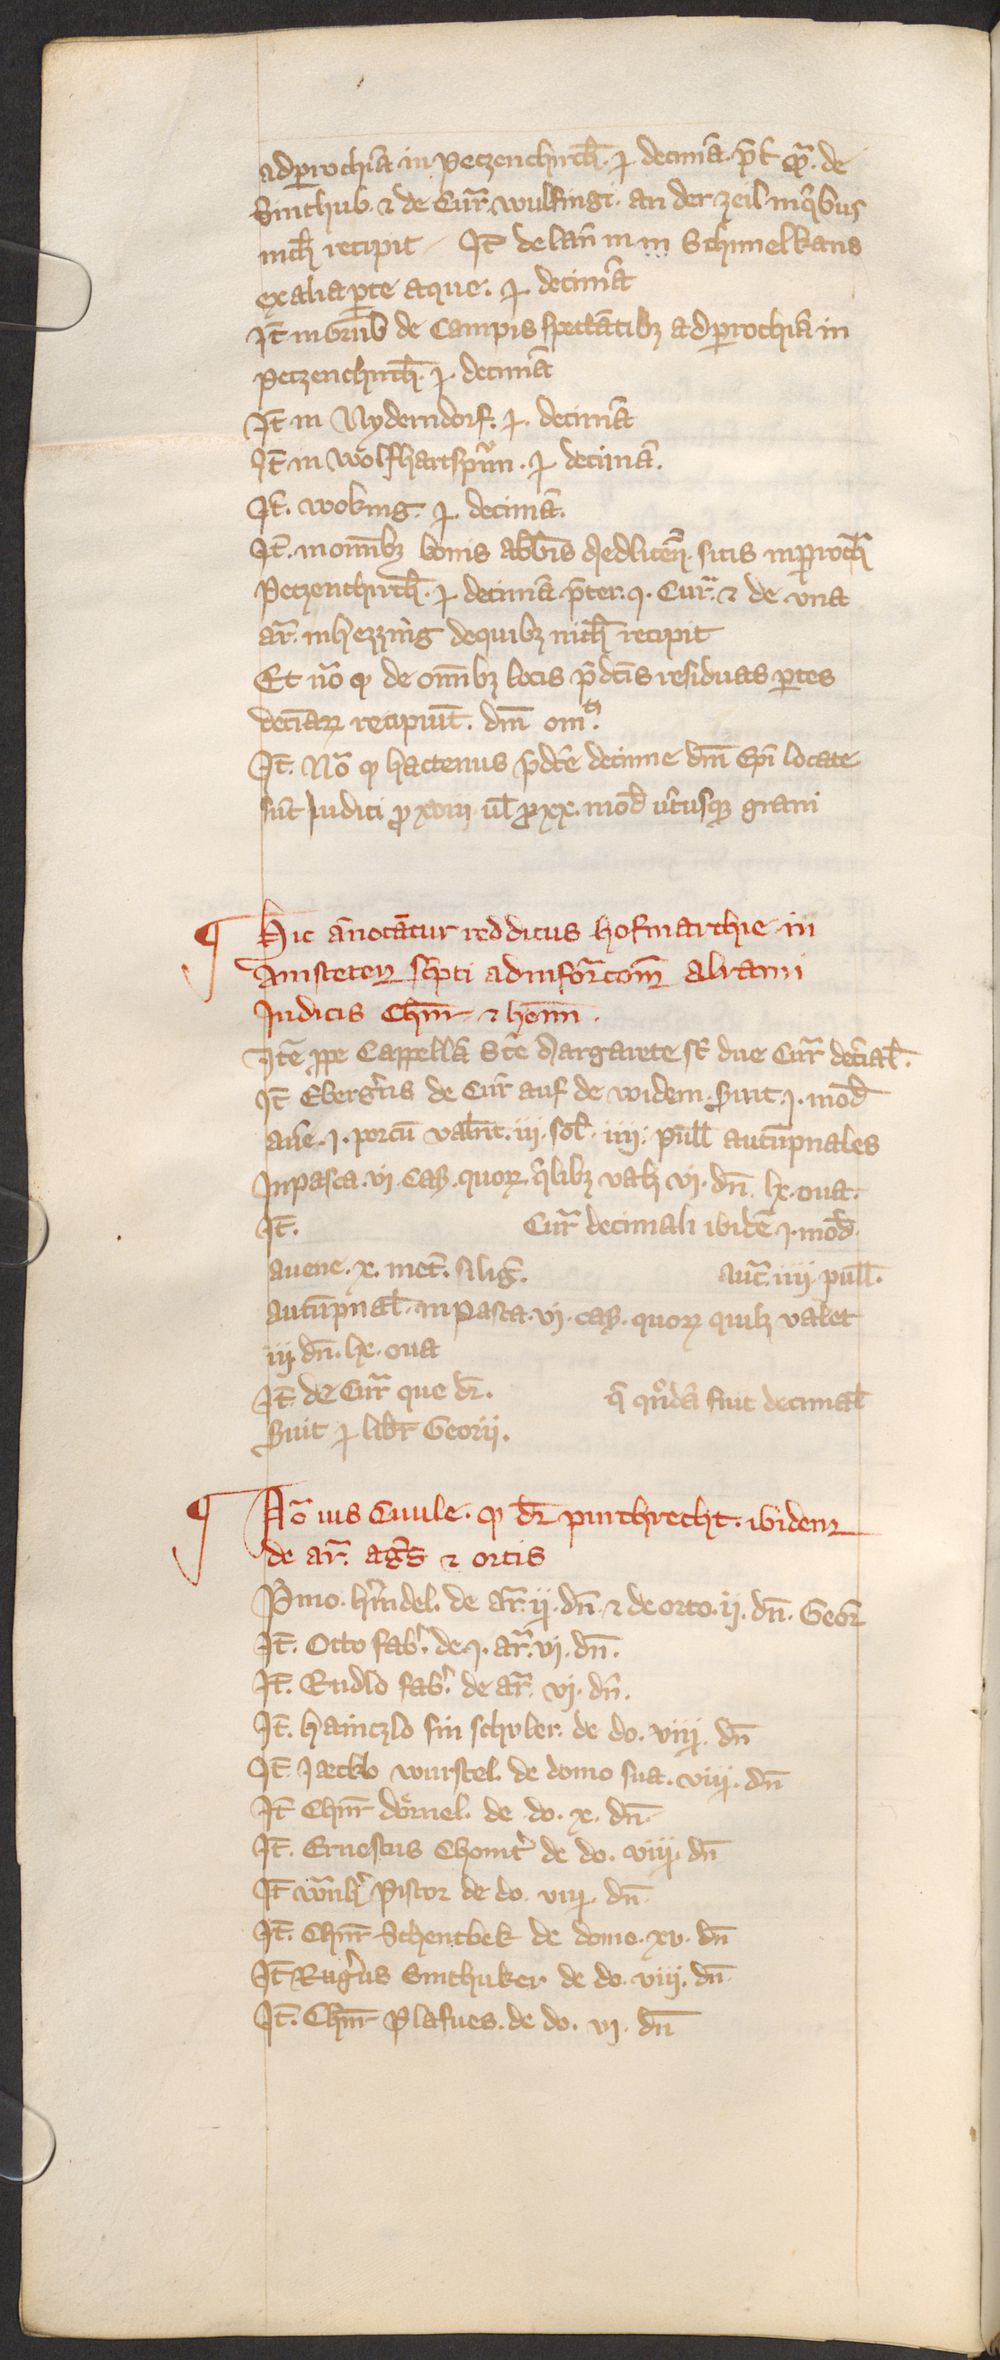 ad ꝑrochiā in Petzenchirch̄. ꝑ decimā. p̄t
Smthub. ⁊ de Cur̄. wulfingi. an der zeil. in q̄bus
nich̄ recipit Jt̄ de lan̄ in Schmelkans
ex alia ꝑte aque. ꝑ. decimā
Jt̄ in Grub de Campis spectātibꝫ ad ꝑrochiā in
petzenchirch̄. ꝑ. decimā
Jt̄ in Nyderndorf. ꝑ. decimā
Jt̄ in wolfhartsprun̄. ꝑ decimā.
Jt̄. woking. ꝑ. decimā.
Jt̄. in om̄ibꝫ bonis abb̄is Medlicēn̄. sitis in ꝑroch̄
Petzenchirch̄. ꝑ decimā p̄ter. ꝯ. Cur̄. ⁊ de vna
ar̄. in hezzing de quibꝫ nich̄ recipit
Et no̅ ꝙ de om̄ibꝫ locis p̄dc̄is residuas ꝑtes
decīarꝫ recipiūt. dn̄i
Jt̄. No̅ ꝙ hactenus p̄dc̄e decime dn̄i Ep̄i locate
sūt Judici ꝓ xviij. ul̄ ꝓ xx. mod̄ utͥusqꝫ grani
Hic ānotātur redditus hofmarchie in
Amsteten sc̄pti ad informac̄om̄ alrami
Judicis Chūr ⁊ hom̄i.
Jtē ꝓpe Cappellā Sc̄e Margarete st̄ due Cur̄ decīal̄.
Jt̄ Ebergͣus de Cur̄ auf de widem. Suit. j. mod̄
aūe. j. porcū valēt. iij. sol̄. iiij. pull̄ autūpnales
Jn pasca. vj. cas̄. quorꝫ. q̄libꝫ valꝫ vj. dn̄. lx. oua.
Jt̄. Cur̄ decimali ibidē j. mod̄.
auene. x. met̄. siliḡ. aut̄. iiij. pull̄.
autūpnal̄. in Pasca. vj. cas̄. quorꝫ quilꝫ valet
iij. dn̄. lx. oua
Jt̄ de Cur̄ que dr̄. q̄ qͦndā fuit decimal̄
Suit ꝑ libr̄ Georij.
No̅ ius Ciuile. ꝙ dr̄ purchrecht. ibidem
de ar̄. agͥs ⁊ ortis
Pͥmo. hͥndel. de ar̄. ij. dn̄. ⁊ de orto. ij. dn̄. Geor̄
Jt̄. Otto fabͥ. de. j. ar̄. vj. dn̄.
Jt̄. Rudlo fabͥ. de ar̄. vj. dn̄.
Jt̄. hainczlo sin schvler. de do. viij. dn̄
Jt̄. Jaeckb wurstel. de domo sua. viij. dn̄
Jt̄ Chūr dörnel. de do. x. dn̄.
Jt̄. Ernestus Chomtͥ de do. viij. dn̄
Jt̄ Pistor de do. viij. dn̄.
Jt̄. Chūr Schentbek de domo. xv. dn̄
Jt̄ Rugͥus Smthuker de do. viij. dn̄.
Jt̄. Chūr Plafues. de do. vj. dn̄